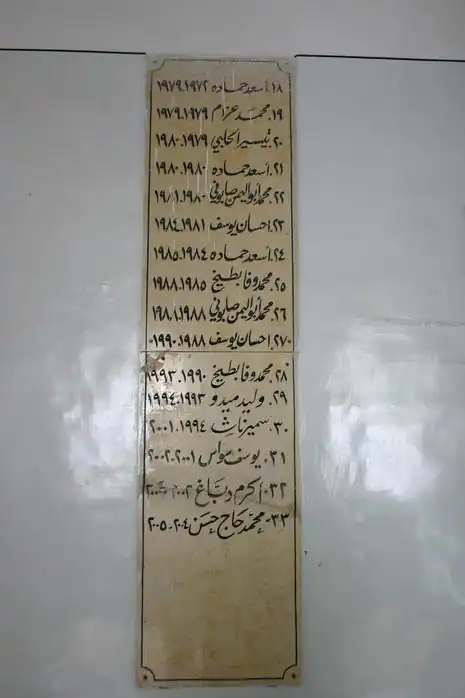 ١٨. أسعد حماده ١٩٧٢.١٩٧٩
١٩. محمد عزام ١٩٧٩.١٩٧٩
٢٠. تيسير الحلبي ١٩٧٩.١٩٨٠
٢١. أسعد حماده ١٩٨٠.١٩٨٠
٢٢. محمد أبو اليمن صابوني ١٩٨٠.١٩٨١
٢٣. احسان يوسف ١٩٨١.١٩٨٤
٢٤. أسعد حماده ١٩٨٤.١٩٨٥
٢٥. محمد وفا بطيخ ١٩٨٥.١٩٨٨
٢٦. محمد أبو اليمن صابوني ١٩٨٨
٢٧. احسان يوسف ١٩٨٨.١٩٩٠
٢٨. محمد وفا بطيخ ١٩٩٠.١٩٩٣
٢٩. وليد ميدو ١٩٩٣.١٩٩٤
٣٠. سمير ناش ١٩٩٤.٢٠٠١
٣١. يوسف مواس ٢٠٠١.٢٠٠٢
٣٢. اكرم دباغ ٢٠٠٢
٣٣. محمد حاج حسن ٢٠٠٤.٢٠٠٥